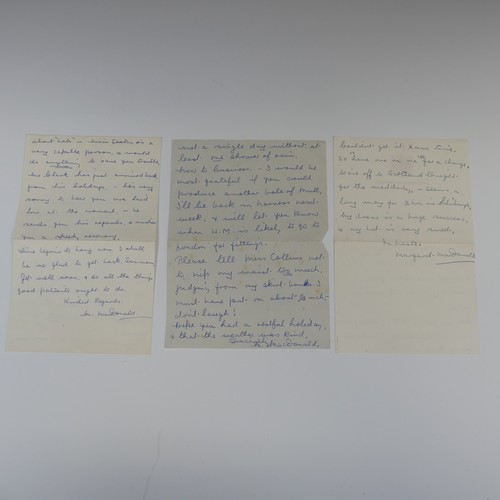 about "hats" – Miss Seaton is a
very capable person, & would
do anything, to save you trouble.
Mr Black has just arrived back
from his holidays, & was very
sorry to hear you are laid
low at the moment – he
sends you his regards, & wishes
you a speedy recovery.
time to hang now I shall
be so glad to get back
Get well soon, & do all the things
good patients ought to do.
Kindest Regards,
M. MacDonald.
not a single day without at
least one shower of rain,
Now to business – I would be
most grateful if you could
produce another bale of
I'll be back in harness next
week, & will let you know
when H.M. is likely to go to
London for fittings.
Please tell Miss Collins not
to nip my waist too much
judging from my skirt bands I
must have put on about ½ inch
don't laugh!
Hope you had a restful holiday,
& that the weather was kind,
Sincerely
M. MacDonald.
couldn't get it home time,
So have one on me for a change,
We're off to Scotland tonight
for the wedding –
long may
my room is a huge success,
& my hat is very smart,
M
Margaret MacDonald